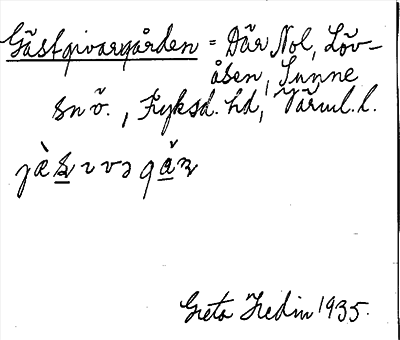 Gästgivargården = Där Nol, Löv-
åsen, Sunne
sn ö., Fryksd. hd, Värml. l.
Greta Hedin 1935.